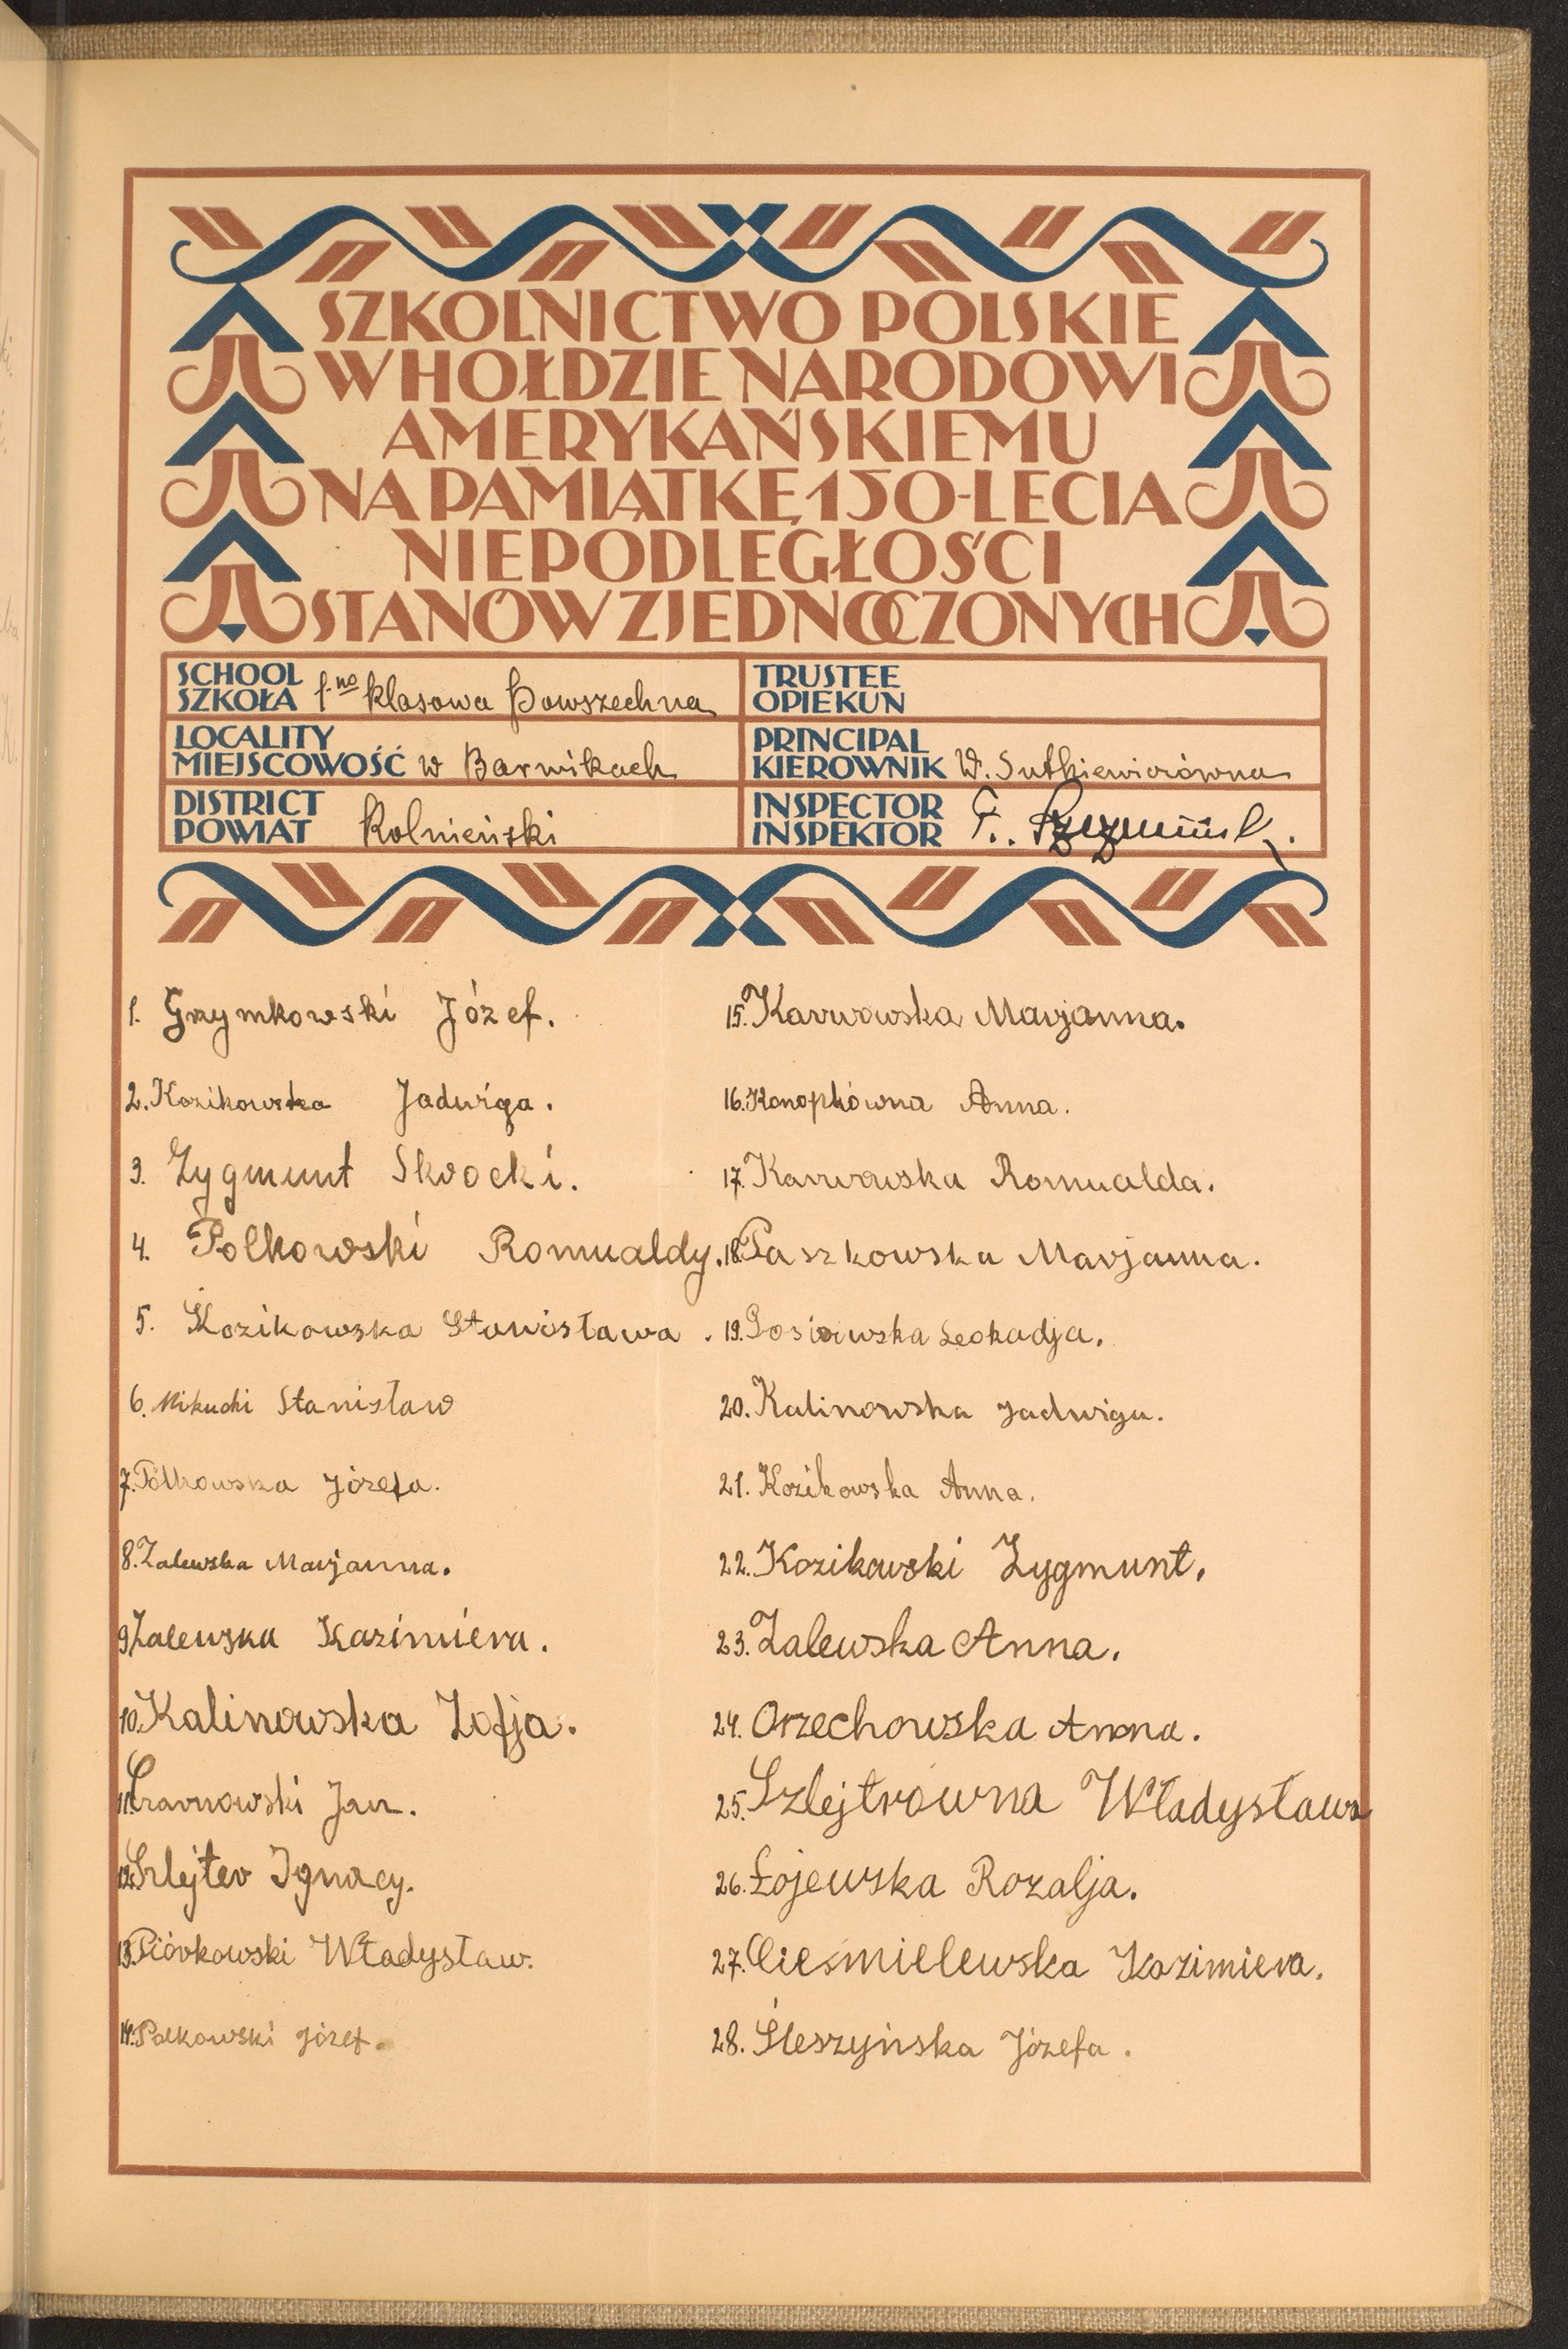 SZKOLNICTWO POLSKIE
W HOŁDZIE NARODOWI
AMERYKAŃSKIEMU
NA PAMIĄTKĘ 150-LECIA
NIEPODLEGŁOŚCI
STANÓW ZJEDNOCZONYCH
SCHOOL
SZKOŁA 1-no klasowa Powszechna
LOCALITY
MIEJSCOWOŚĆ w Barwikach
DISTRICT
POWIAT Kolnieński
TRUSTEE
OPIEKUN
PRINCIPAL
KIEROWNIK W. Sutkiewiczówna
INSPECTOR
INSPEKTOR F.
1. Grzymkowski Józef.
2. Kozikowska Jadwiga.
3. Zygmunt Skrocki.
4. Polkowski Romualdy.
5. Kozikowska Stanisława.
6. Mikucki Stanisław
7. Polkowska Józefa.
8. Zalewska Marjanna.
9. Zalewska Kazimiera.
10. Kalinowska Zofja.
11. Jan.
12. Szlejter Ignacy.
13. Piórkowski Władysław.
14. Polkowski Józef.
15. Karwowska Marjanna.
16. Konopkówna Anna.
17. Karwowska Romualda.
18. Paszkowska Marjanna.
19. Leokadja.
20. Kalinowska Jadwiga.
21. Kozikowska Anna.
22. Kozikowski Zygmunt.
23. Zalewska Anna.
24. Orzechowska Anna.
25. Szlejtrówna Władysława
26. Łojewska Rozalja.
27. Cieśmielewska Kazimiera.
28. Śleszyńska Józefa.